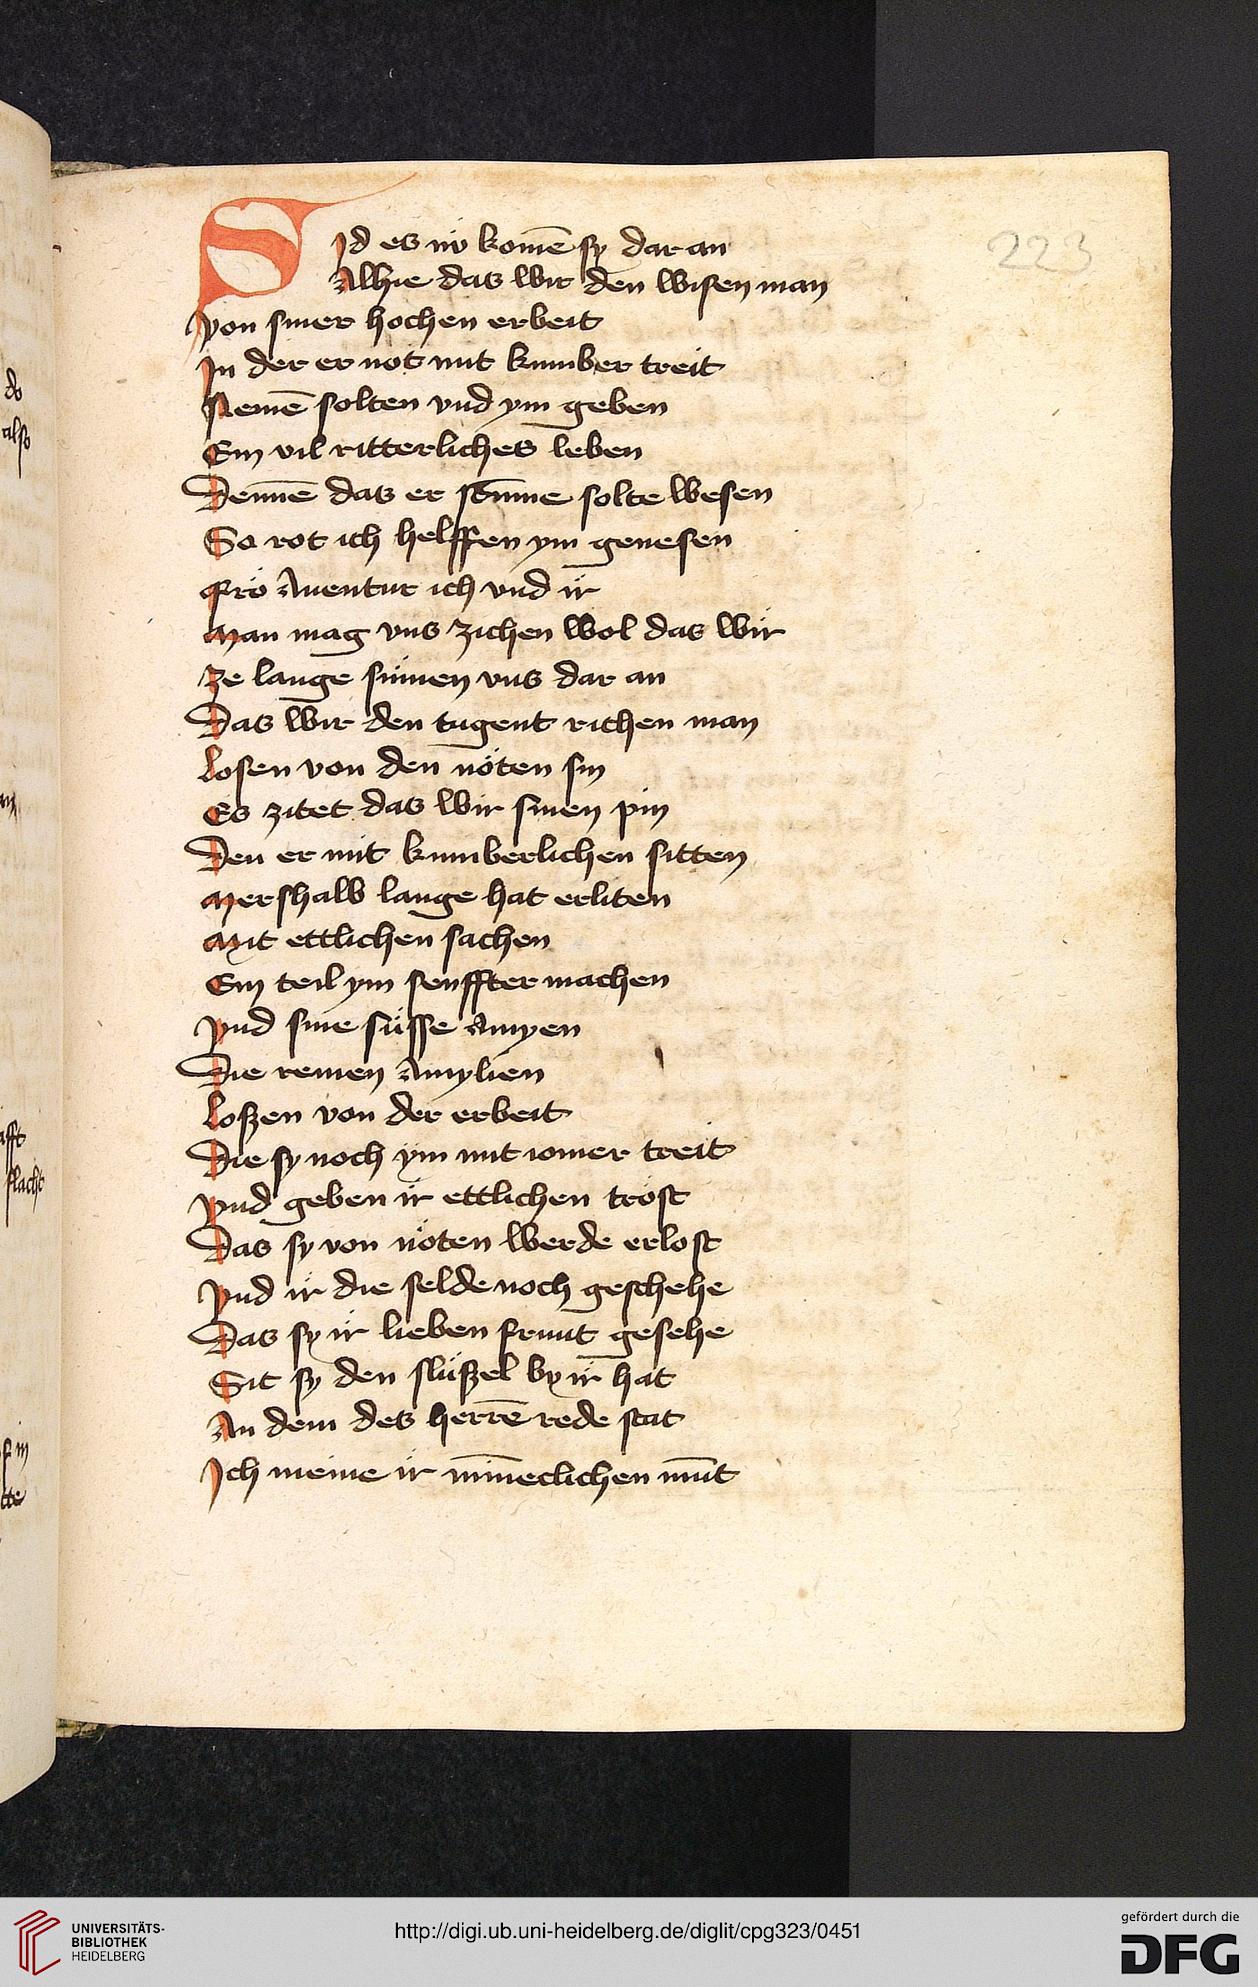 223
Sid es nv̊ komē sy dar an
Alhie das wir den wisen man
Von siner hochen erbeit
In der er not mit kumber treit
Nemē solten vnd ym geben
Ein vil ritterliches leben
Dennē das er stum̄e solte wesen
So rot ich helffen ym genesen
Frö Auentur ich vnd ir
Man mag vns zichen wol das wir
Ze lange sumen vns dar an
Das wir den tugent richen man
Losen von den nöten sin
Es zitet das wir sinen pin
Den er mit kumberlichen sitten
Mershalb lange hat erliten
Mit ettlichen sachen
Ein teil ym senffter machen
Vnd sine süsse Amyen
Die reinen Amylien
Loszen von der erbeit
Die sy noch ym mit iomer treit
Vnd geben ir ettlichen trost
Das sy von nöten werde erlost
Vnd ir die selde noch geschehe
Das sy ir lieben frunt gesehe
Sit sy den slüszel by ir hat
An dem des herrē rede stat
Ich meine ir min̄eclichen mūt
do
also
afft
flacht
UNIVERSITÄTS-
BIBLIOTHEK
HEIDELBERG
http://digi.ub.uni-heidelberg.de/diglit/cpg323/0451
gefördert durch die
DFG